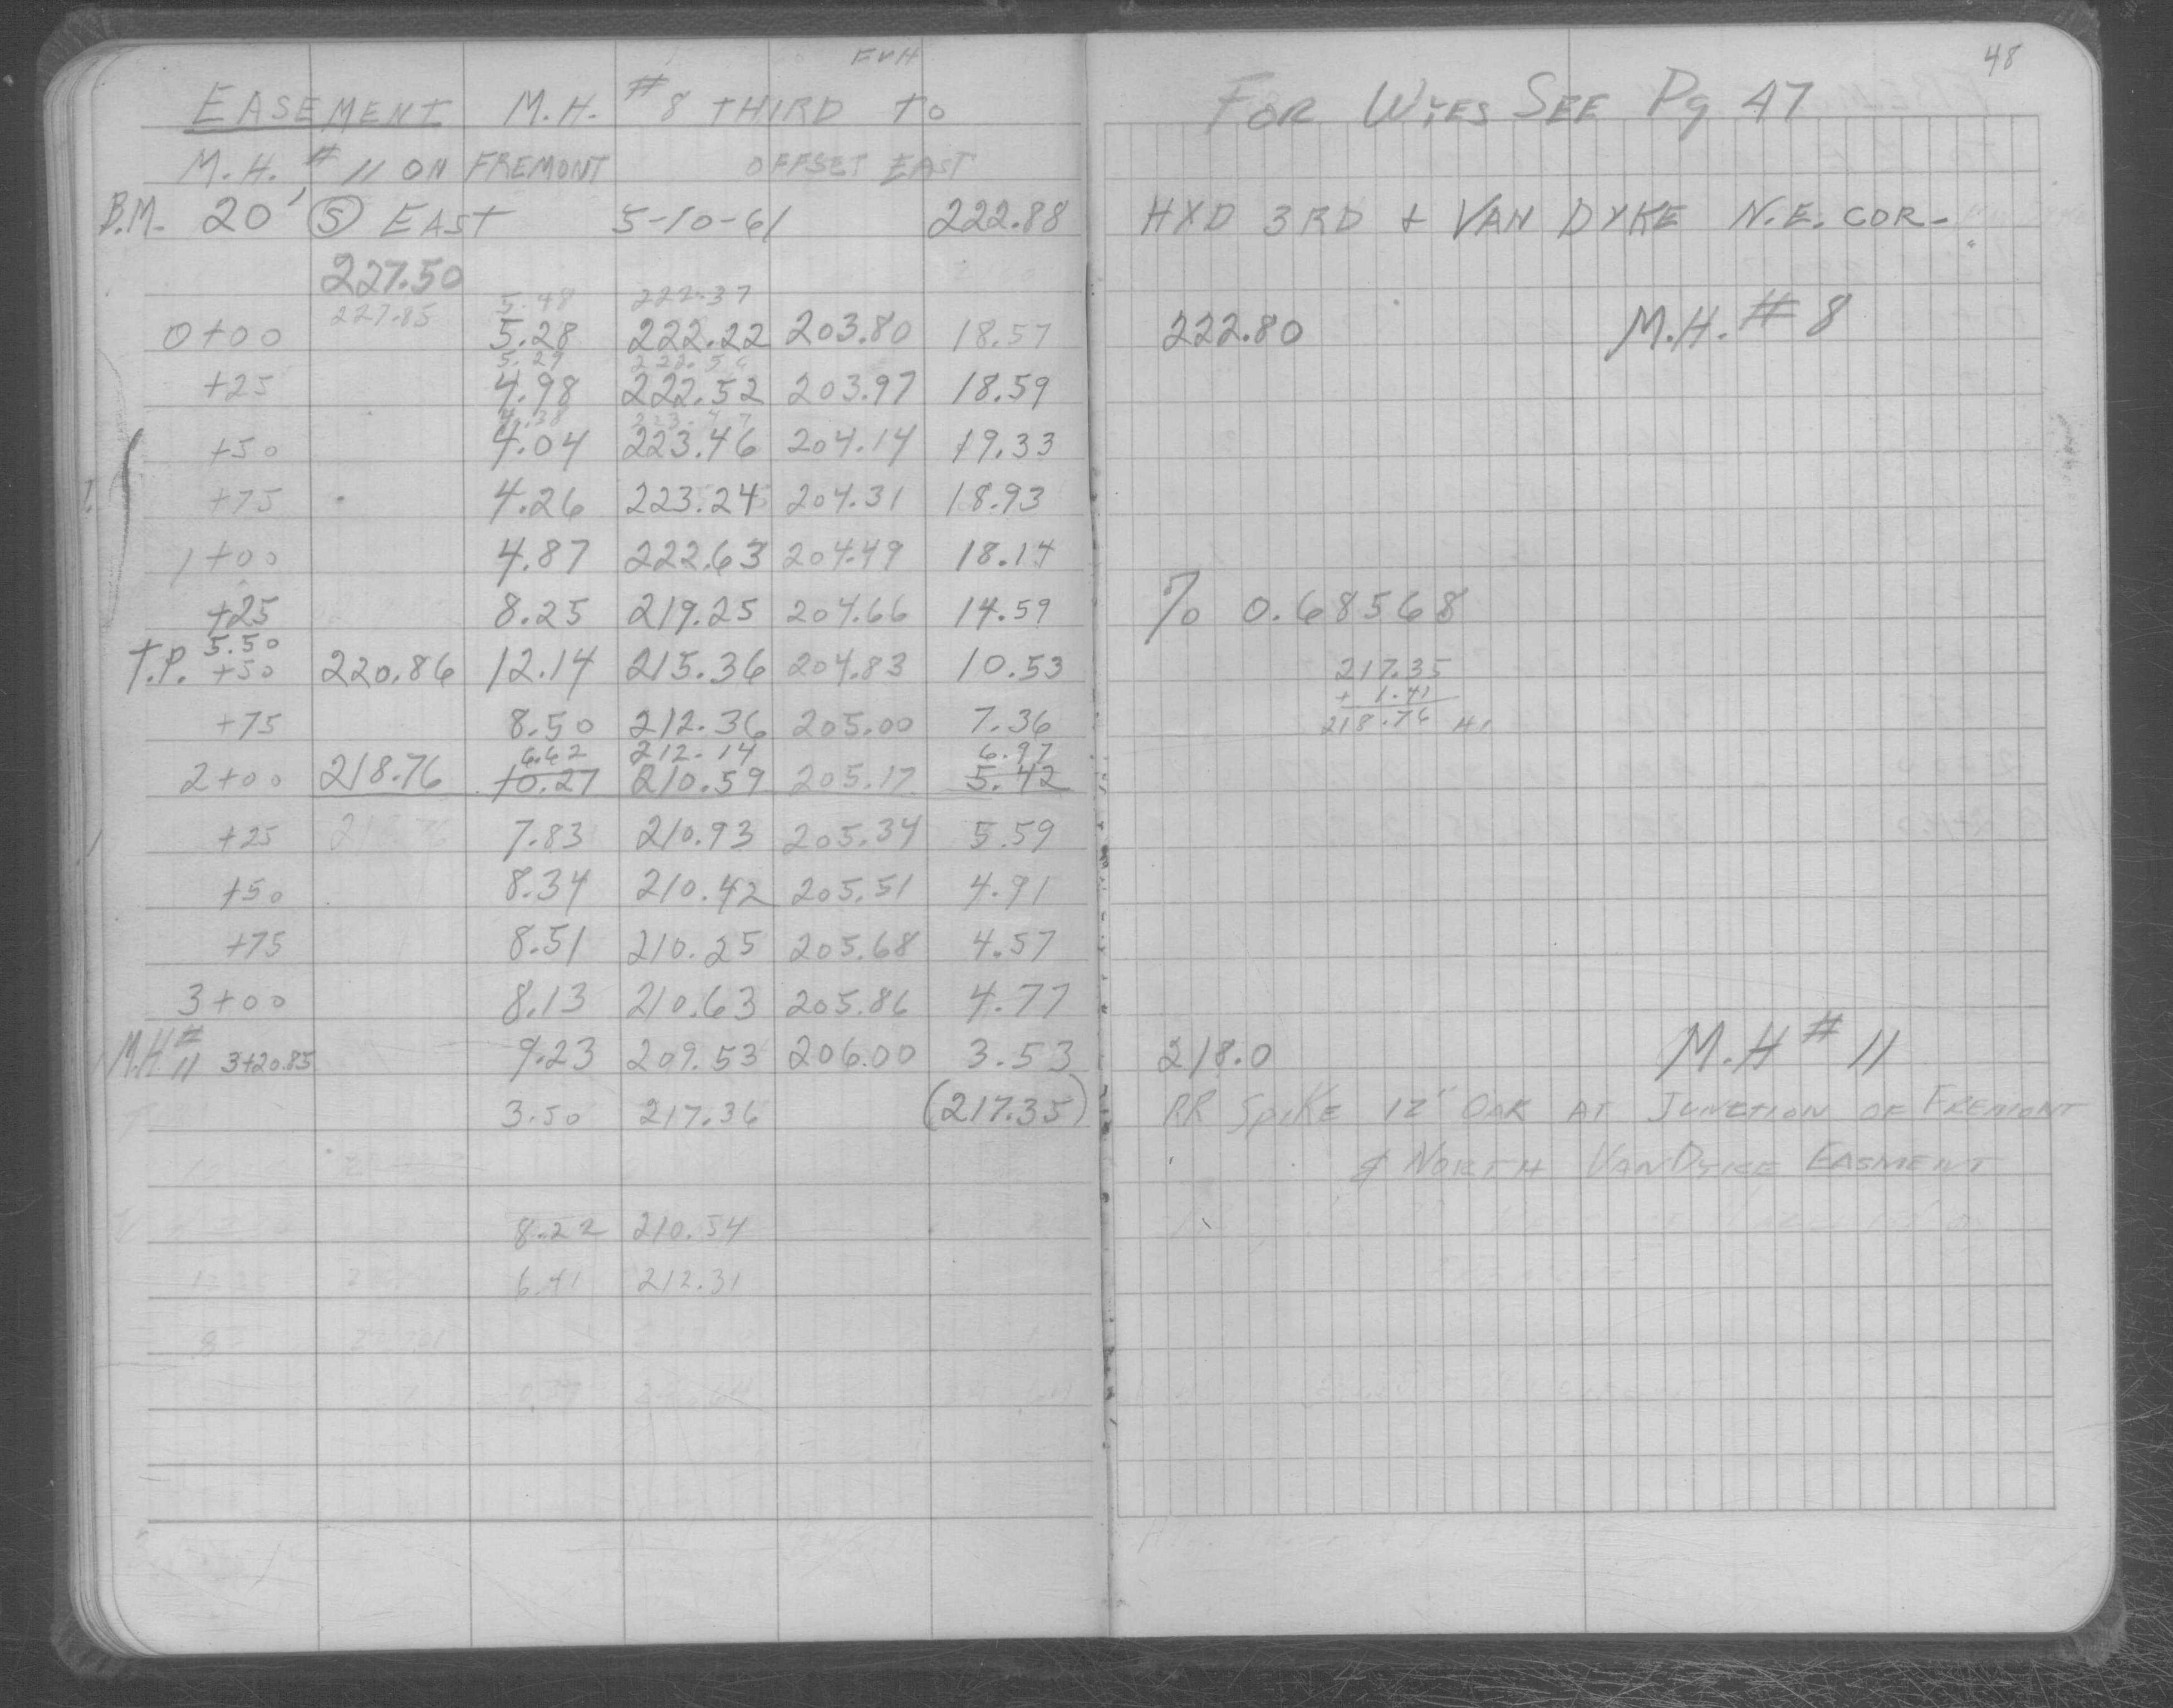 FVH
48
EASEMENT M.H. #8 THIRD TO
M.H. #11 ON FREMONT OFFSET EAST
B.M. 20' (S) EAST 5-10-61 222.88
227.50
5.48 222.37
227.85
0+00 5.28 222.22 203.80 18.57
5.29
+25 4.98 222.52 203.97 18.59
4.38
+50 4.04 223.46 204.14 19.33
+75 4.26 223.24 204.31 18.93
1+00 4.87 222.63 204.49 18.14
+25 8.25 219.25 204.66 14.59
5.50
T.P. +50 220.86 12.14 215.36 204.83 10.53
+75 8.50 212.36 205.00 7.36
6.62 212.14 6.97
2+00 218.76 10.27 210.59 205.17 5.42
+25 218.76 7.83 210.93 205.34 5.59
+50 8.34 210.42 205.51 4.91
+75 8.51 210.25 205.68 4.57
3+00 8.13 210.63 205.86 4.77
M.H. #11 3+20.85 9.23 209.53 206.00 3.53
3.50 217.36 (217.35)
8.22 210.54
6.41 212.31
FOR WYES SEE Pg 47
HXD 3RD + VAN DYKE N.E. COR-
222.80 M.H. #8
% 0.68568
217.35
+ 1.41
218.76 HI
218.0 M.H #11
RR SPIKE 12" OAK AT JUNCTION OF FREMONT
& NORTH VANDYKE EASMENT